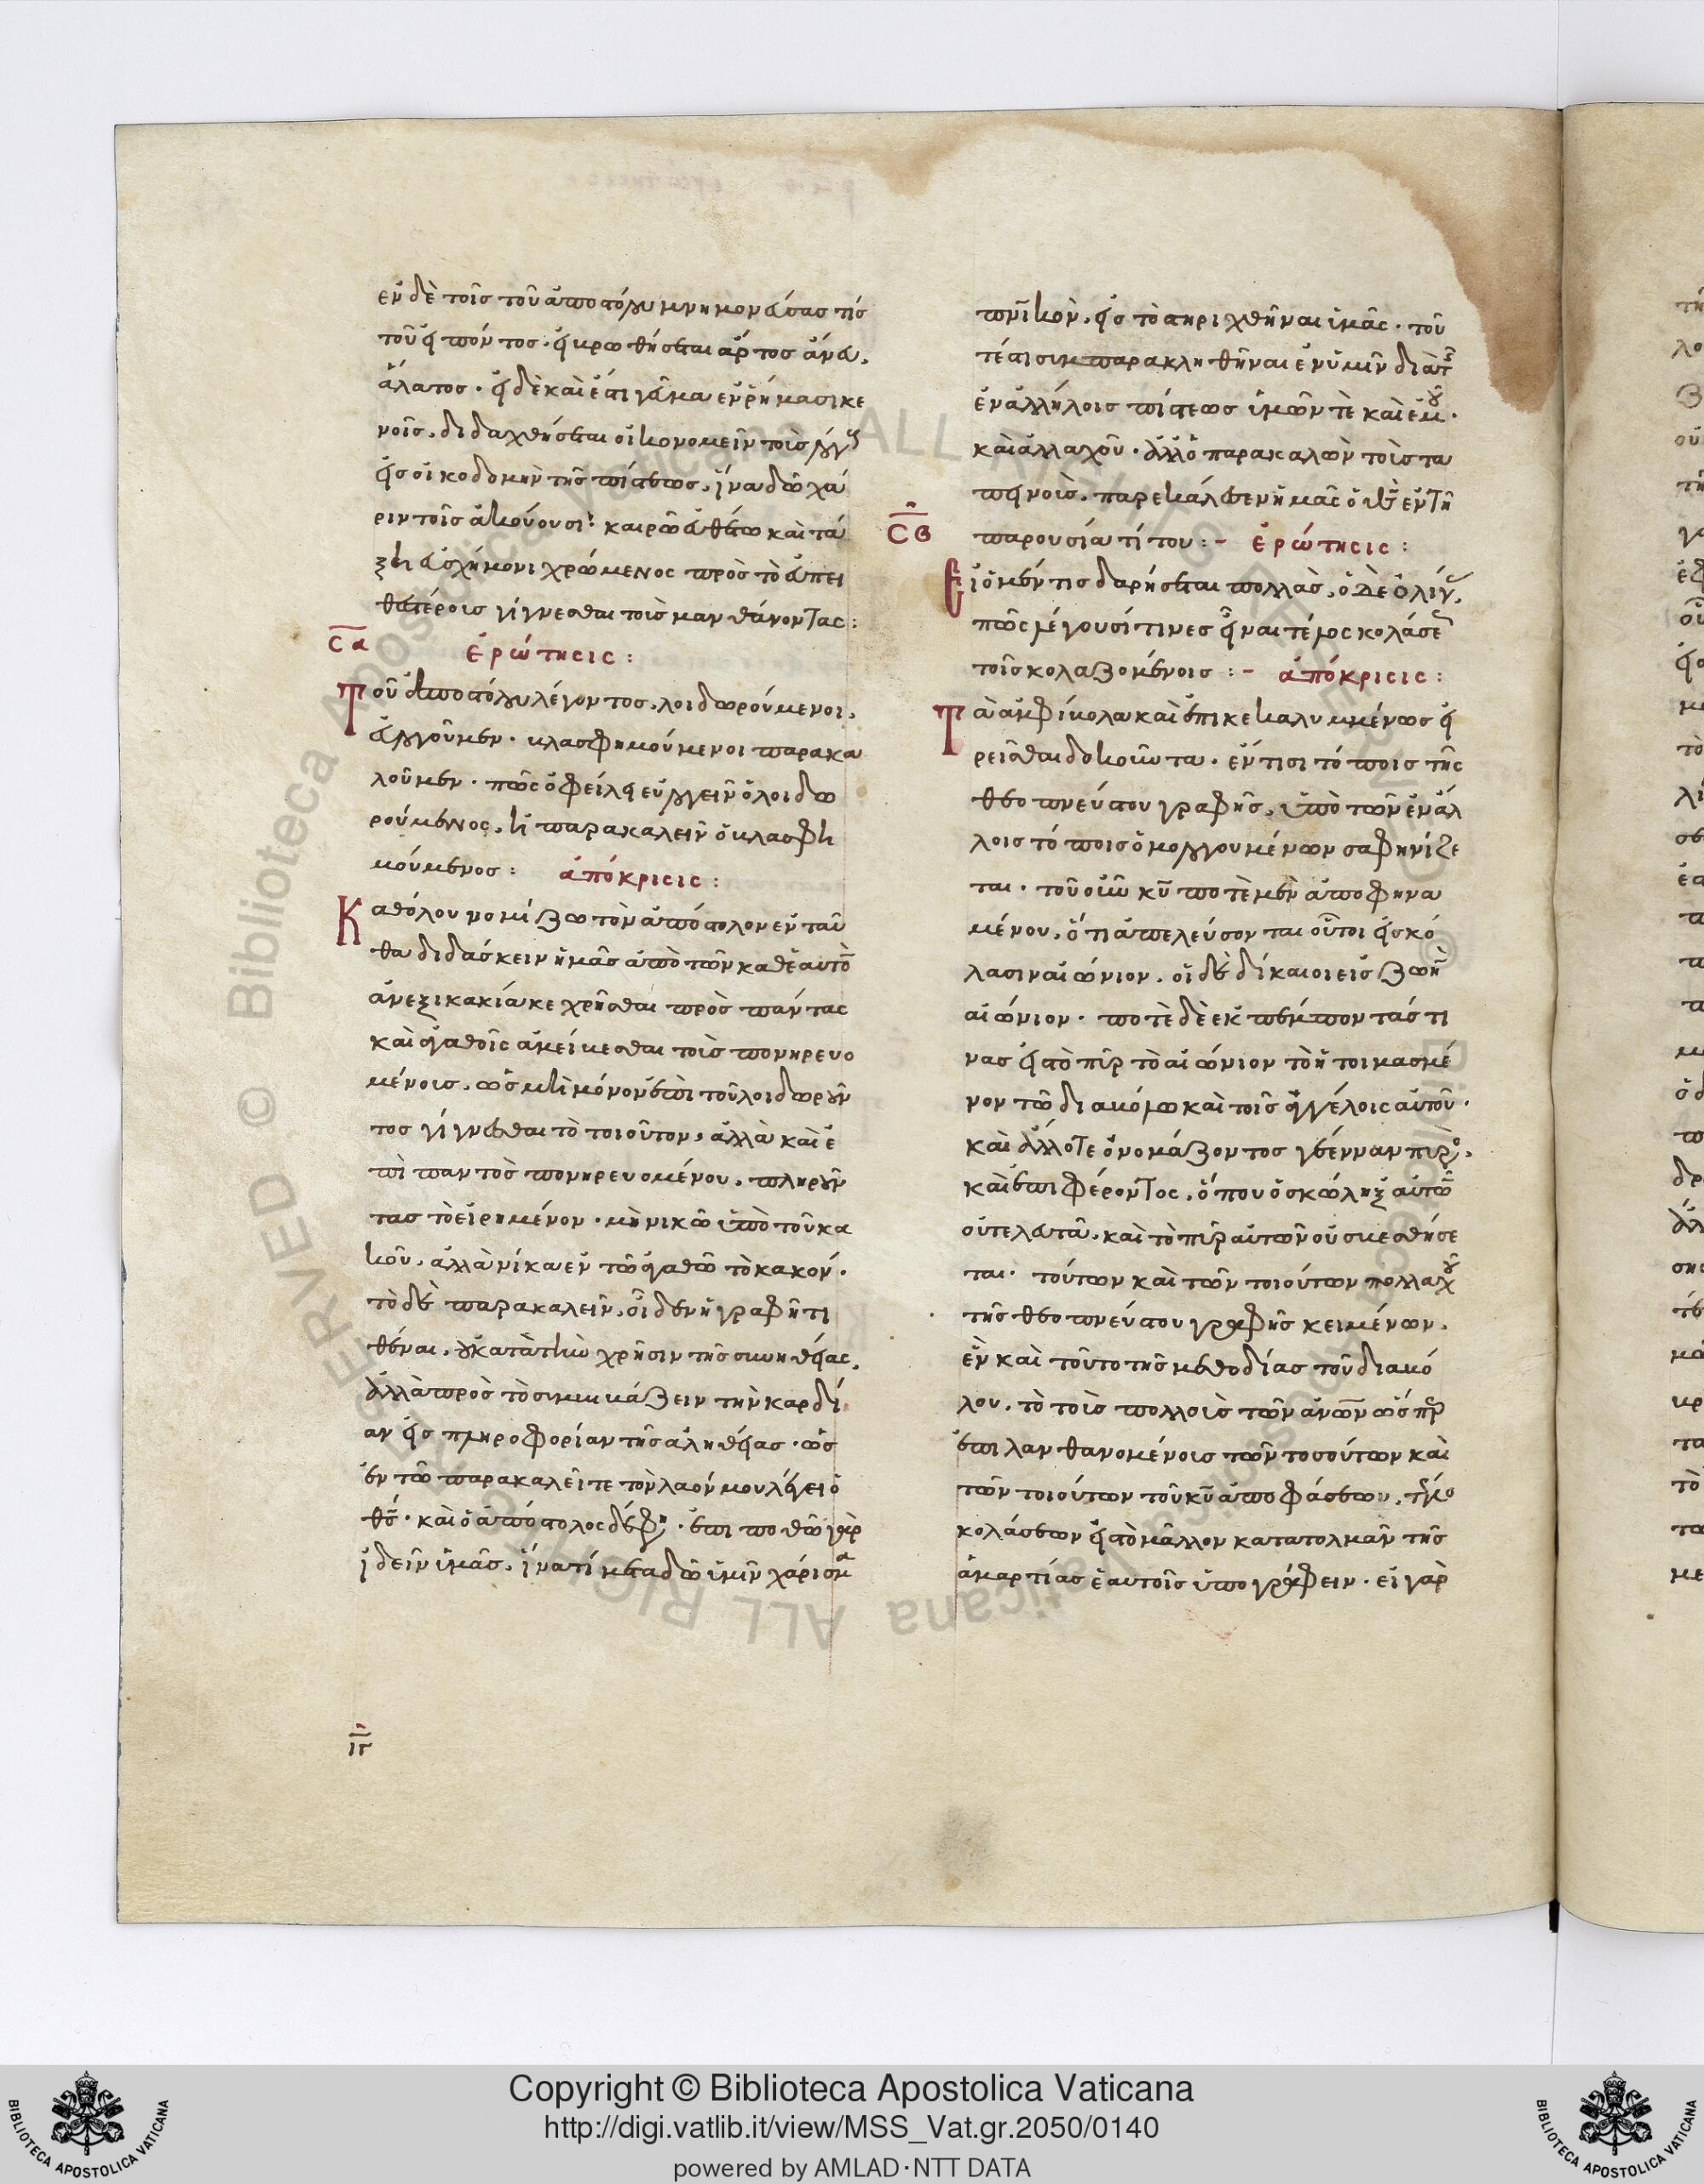 ἐν δὲ τοῖς τοῦ ἀποστόλου μνημονεύσας τίς
τοῦ εἰπόντος· εἰ βρωθήσεται ἄρτος ἄνευ
ἅλατος· εἰ δὲ καὶ ἔστι γεῦμα ἐν ῥήμασι κε
νοῖς, διδαχθήσεται οἰκονομεῖν τοὺς λόγους
εἰς οἰκοδομὴν τῆς πίστεως, ἵνα δῶ χά
ριν τοῖς ἀκούουσι· καιρῶ εὐθέτω καὶ τά
ξει εὐσχήμονι χρώμενος πρὸς τὸ εὐπει
θεστέροις γίγνεσθαι τοὺς μανθάνοντας:
ςα
ἐρώτησις:
Τοῦ ἀποστόλου λέγοντος, λοιδωρούμενοι,
εὐλογοῦμεν· βλασφημούμενοι παρακα
λοῦμεν· πῶς ὀφείλει εὐλογεῖν ὁ λοιδω
ρούμενος, ἢ παρακαλεῖν ὁ βλασφη
μούμενος: ἀπόκρισις:
Καθόλου νομίζω τὸν ἀπόστολον ἐνταῦ
θα διδάσκειν ἡμᾶς ἀπὸ τῶν καθ ἑαυτὸν
ἀνεξικακία κεχρῆσθαι πρὸς πάντας
καὶ ἀγαθοῖς ἀμείβεσθαι τοὺς πονηρευο
μένοις, ὡς μὴ μόνον ἐπὶ τοῦ λοιδωροῦν
τος γίγνεσθαι τὸ τοιοῦτον, ἀλλὰ καὶ ἐ
πὶ παντὸς πονηρευομένου, πληροῦν
τας τὸ εἰρημένον· μὴ νικῶ ὑπὸ τοῦ κα
κοῦ, ἀλλὰ νίκα ἐν τῶ ἀγαθῶ τὸ κακόν·
τὸ δὲ παρακαλεῖν, οἶδεν ἡ γραφῆ τι
θέναι, οὐ κατὰ τὴν χρῆσιν τῆς συνηθείας,
ἀλλὰ πρὸς τὸ συμβιβάζειν τὴν καρδί
αν εἰς πληροφορίαν τῆς ἀληθείας· ὡς
ἐν τῶ παρακαλεῖτε τὸν λαόν μου λέγει ὁ
θς· καὶ ὁ ἀπόστολος δέ φη· ἐπιποθῶ γὰρ
ἰδεῖν ὑμᾶς, ἵνα τί μεταδῶ ὑμῖν χάρισμα
ιγ
πνικὸν, εἰς τὸ στηριχθῆναι ὑμᾶς· τοῦ
τέστι συμπαρακληθῆναι ἐν ὑμῖν διὰ τῆς
ἐν ἀλλήλοις πίστεως ὑμῶν τὲ καὶ ἐμοῦ·
καὶ ἀλλαχοῦ· ἀλλ ὁ παρακαλῶν τοὺς τα
πεινοὺς, παρεκάλεσεν ἡμᾶς ὁ θς ἐν τῆ
ςβ
παρουσία τίτου:– ἐρώτησις:
Εἰ ὁ μέν τις δαρήσεται πολλὰς, ὁ δὲ ὀλίγας,
πῶς λέγουσί τινες εἶναι τέλος κολάσεως
τοῖς κολαζομένοις:– ἀπόκρισις:
Τὰ ἀμφίβολα καὶ ἐπικεκαλυμμένως εἰ
ρεῖσθαι δοκοῦντα· ἔν τισι τόποις τῆς
θεοπνεύστου γραφῆς, ὑπὸ τῶν ἐν ἄλ
λοις τόποις ὁμολογουμένων σαφηνίζε
ται· τοῦ οὖν κυ ποτὲ μὲν ἀποφηνα
μένου, ὅτι ἀπελεύσονται οὗτοι εἰς κό
λασιν αἰώνιον, οἱ δὲ δίκαιοι εἰς ζωὴν
αἰώνιον· ποτὲ δὲ ἐκπέμποντάς τι
νας εἰς τὸ πῦρ τὸ αἰώνιον τὸ ἡτοιμασμέ
νον τῶ διαβόλω καὶ τοῖς ἀγγέλοις αὐτοῦ·
καὶ ἄλλοτε ὀνομάζοντος γέενναν πυρός,
καὶ ἐπιφέροντος, ὅπου ὁ σκώληξ αὐτῶν
οὐ τελευτᾶ, καὶ τὸ πῦρ αὐτῶν οὐ σβεσθήσε
ται· τούτων καὶ τῶν τοιούτων πολλαχοῦ
τῆς θεοπνεύστου γραφῆς κειμένων,
ἓν καὶ τοῦτο τῆς μεθοδίας τοῦ διαβό
λου, τὸ τοὺς πολλοὺς τῶν ἀνων ὥσπερ
ἐπιλανθανομένοις τῶν τοσούτων καὶ
τῶν τοιούτων τοῦ κυ ἀποφάσεων, τέλος
κολάσεων εἰς τὸ μᾶλλον κατατολμᾶν τῆς
ἁμαρτίας ἑαυτοῖς ὑπογράφειν· εἰ γὰρ
Copyright © Biblioteca Apostolica Vaticana
http://digi.vatlib.it/view/MSS_Vat.gr.2050/0140
powered by AMLAD·NTT DATA